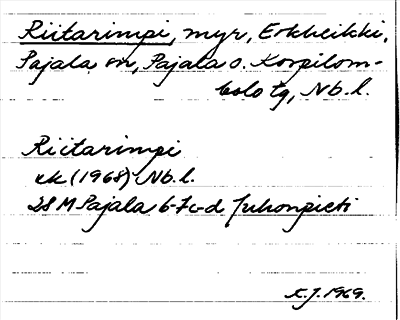 Riitarimpi, myr, Erkheikki,
Pajala sn, Pajala o. Korpilom-
bolo tg, Nb. l.
Riitarimpi
ek (1968) Nb. l.
28 M Pajala 6-7c-d Juhonpieti
K.J. 1969.